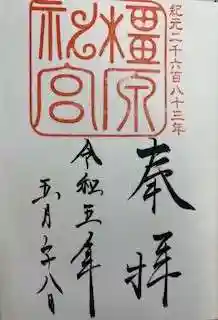 紀元二千六百八十三年
奉拝
橿原
神宮
令和五年
五月 八日